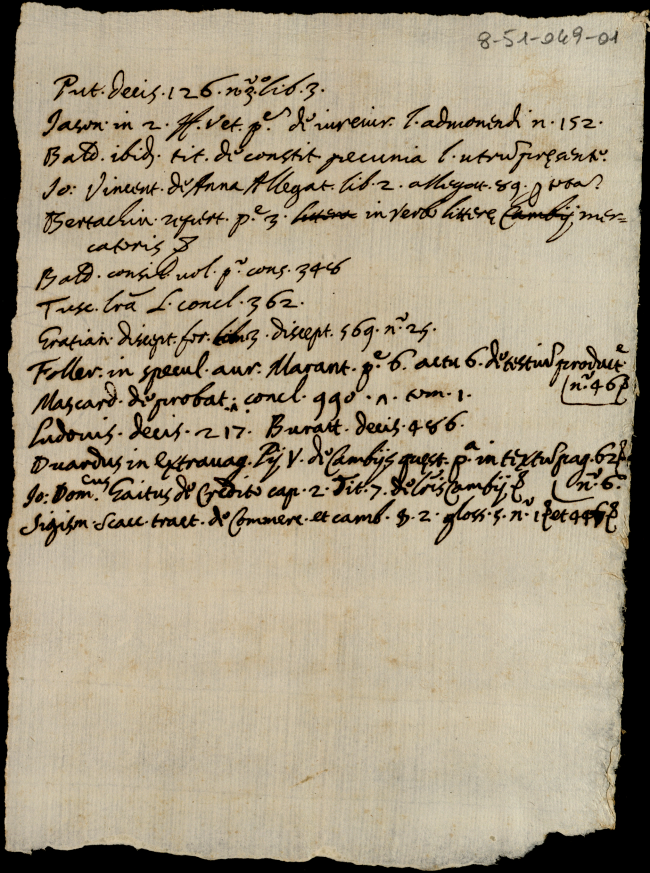 8-51-049-01
Put. decis. 126. n.º 3. lib. 3.
Jason. in 2. ff. vet. p.e de iureiur. l. admonendi n. 152.
Bald. ibid. tit. de constit. pecunia l. utrũ presente.
Jo: Vincent. de Anna Allegat. lib. 2. allegat. 89. p totã
Bertachin. repert. p.e 3. littera in verbo litterę Cambij mer=
catoris
Bald. consil. vol. p.º cons. 348
Tusc. lrã L. concl. 362.
Gratian. discept. for. lib. 3. discept. 569. n.º 25.
Foller. in specul. aur. Marant. p.e 6. actu 6. de testiũ product.e
n.º 46
Mascard. de probat. concl. 990. n. tom. 1.
Ludovis. decis. 217. Buratt. decis. 486.
Duardus in extravag. Pij V. de Cambijs quest. p.a in textu pag. 62
n.º 6.
Jo: Dom.cus Gaitus de Credito cap. 2. Tit. 7. de lris Cambij
Sigism. Scacc. tract. de Commerc. et camb. §. 2. gloss. 5. n.º 1 et 446